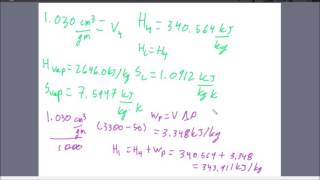 1.030 cm³/gm = V₄ H₄ = 340.564 kJ/kg
H₂ = H₄
Hvap = 2646.0 kJ/kg S_L = 1.0912 kJ/kg K
Svap = 7.5947 kJ/kg K
1.030 cm³/gm (3300-50) wp = V ΔP
1000 = 3.348 kJ/kg
H₁ = H₄ + wp = 340.564 + 3.348
= 343.911 kJ/kg